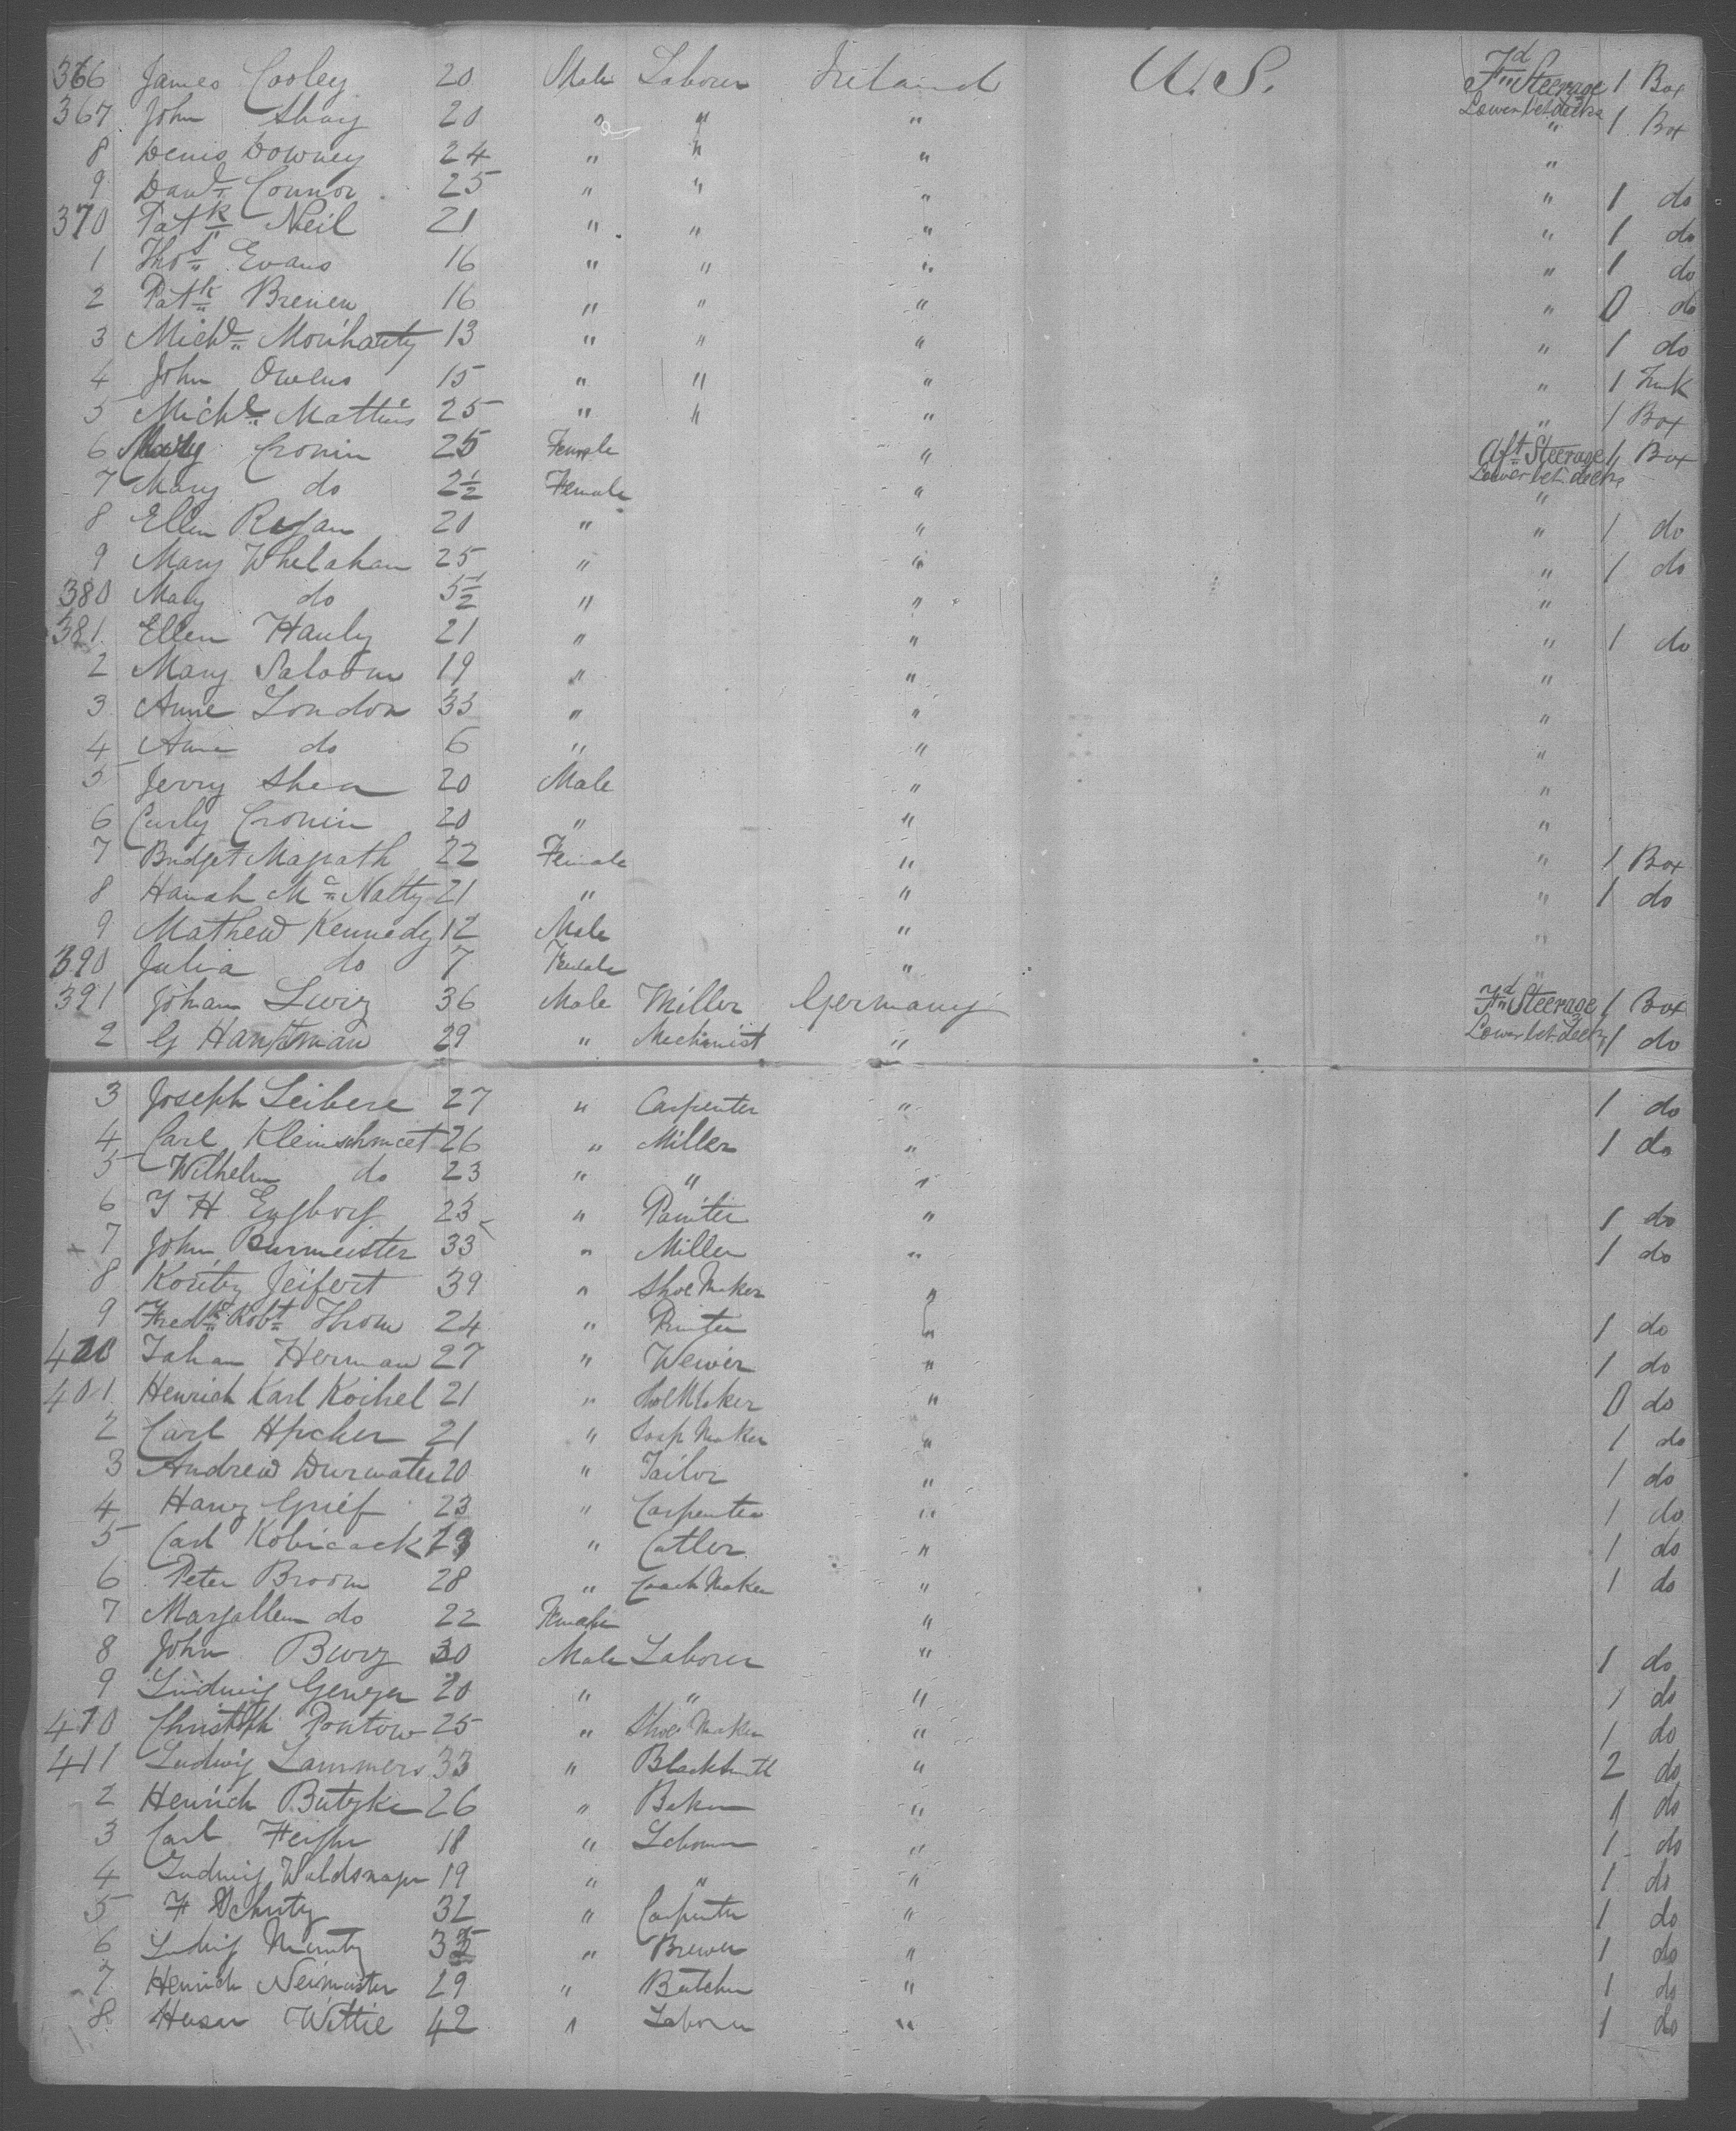 366 James Cooley 20 Male Laborer Ireland U.S. Fd Steerage 1 Box
Lower bet decks
367 John Shay 20 " " " " 1 Box
8 Denis Downey 24 " " " "
9 Danl Connor 25 " " " " 1 do
370 Patk Neil 21 " " " " 1 do
1 Thos Evans 16 " " " " 1 do
2 Patk Brenen 16 " " " " 0 do
3 Michl Moriharty 13 " " " " 1 do
4 John Owens 15 " " " " 1 Trunk
5 Michl Mattius 25 " " " " 1 Box
6 Cronin 25 Female " Aft Steerage 1 Box
Lower bet decks
7 Mary do 2½ Female " "
8 Ellen Ryan 20 " " " 1 do
9 Mary Whelahan 25 " " " 1 do
380 Mary do 5½ " " "
381 Ellen Hanly 21 " " " 1 do
2 Mary 19 " " "
3 Anne London 33 " " "
4 Anne do 6 " " "
5 Jerry Shea 20 Male " "
6 Curly Cronin 20 " " "
7 Bridget Magrath 22 Female " " 1 Box
8 Hanah Mc Natty 21 " " " 1 do
9 Mathew Kennedy 12 Male " "
390 Julia do 7 Female " "
391 Johan 36 Male Miller Germany Fd Steerage 1 Box
2 G 29 " Mechinist " Lower bet decks 1 do
3 Joseph Leibere 27 " Carpenter " 1 do
4 Carl Kleinschmeet 26 " Miller " 1 do
5 Wilhelm do 23 " " "
6 H 23 " Painter " 1 do
7 John Burmeister 33 " Miller " 1 do
8 Jeifert 39 " Shoe Maker "
9 Fredk Robt Throm 24 " " 1 do
400 Johan Herman 27 " Wever " 1 do
401 Henrich Karl Koihel 21 " Shoe Maker " 0 do
2 Carl 21 " Soap Maker " 1 do
3 Andrew 20 " Tailor " 1 do
4 Grief 23 " Carpenter " 1 do
5 Carl " Cutler " 1 do
6 Peter Broom 28 " Coach Maker " 1 do
7 Maryallen do 22 Female "
8 John 30 Male Laborer " 1 do
9 Ludwig 20 " " " 1 do
410 Christoph Pontow 25 " Shoe Maker " 1 do
411 Ludwig Lammers 33 " Blacksmith " 2 do
2 Henrich Butzke 26 " Baker " 1 do
3 Carl 18 " Laborer " 1 do
4 Ludwig 19 " " " 1 do
5 F Schutz " Carpenter " 1 do
6 Ludwig " Brewer " 1 do
7 Henrich Neimaister 29 " Butcher " 1 do
8 Wittie 42 " Laborer " 1 do